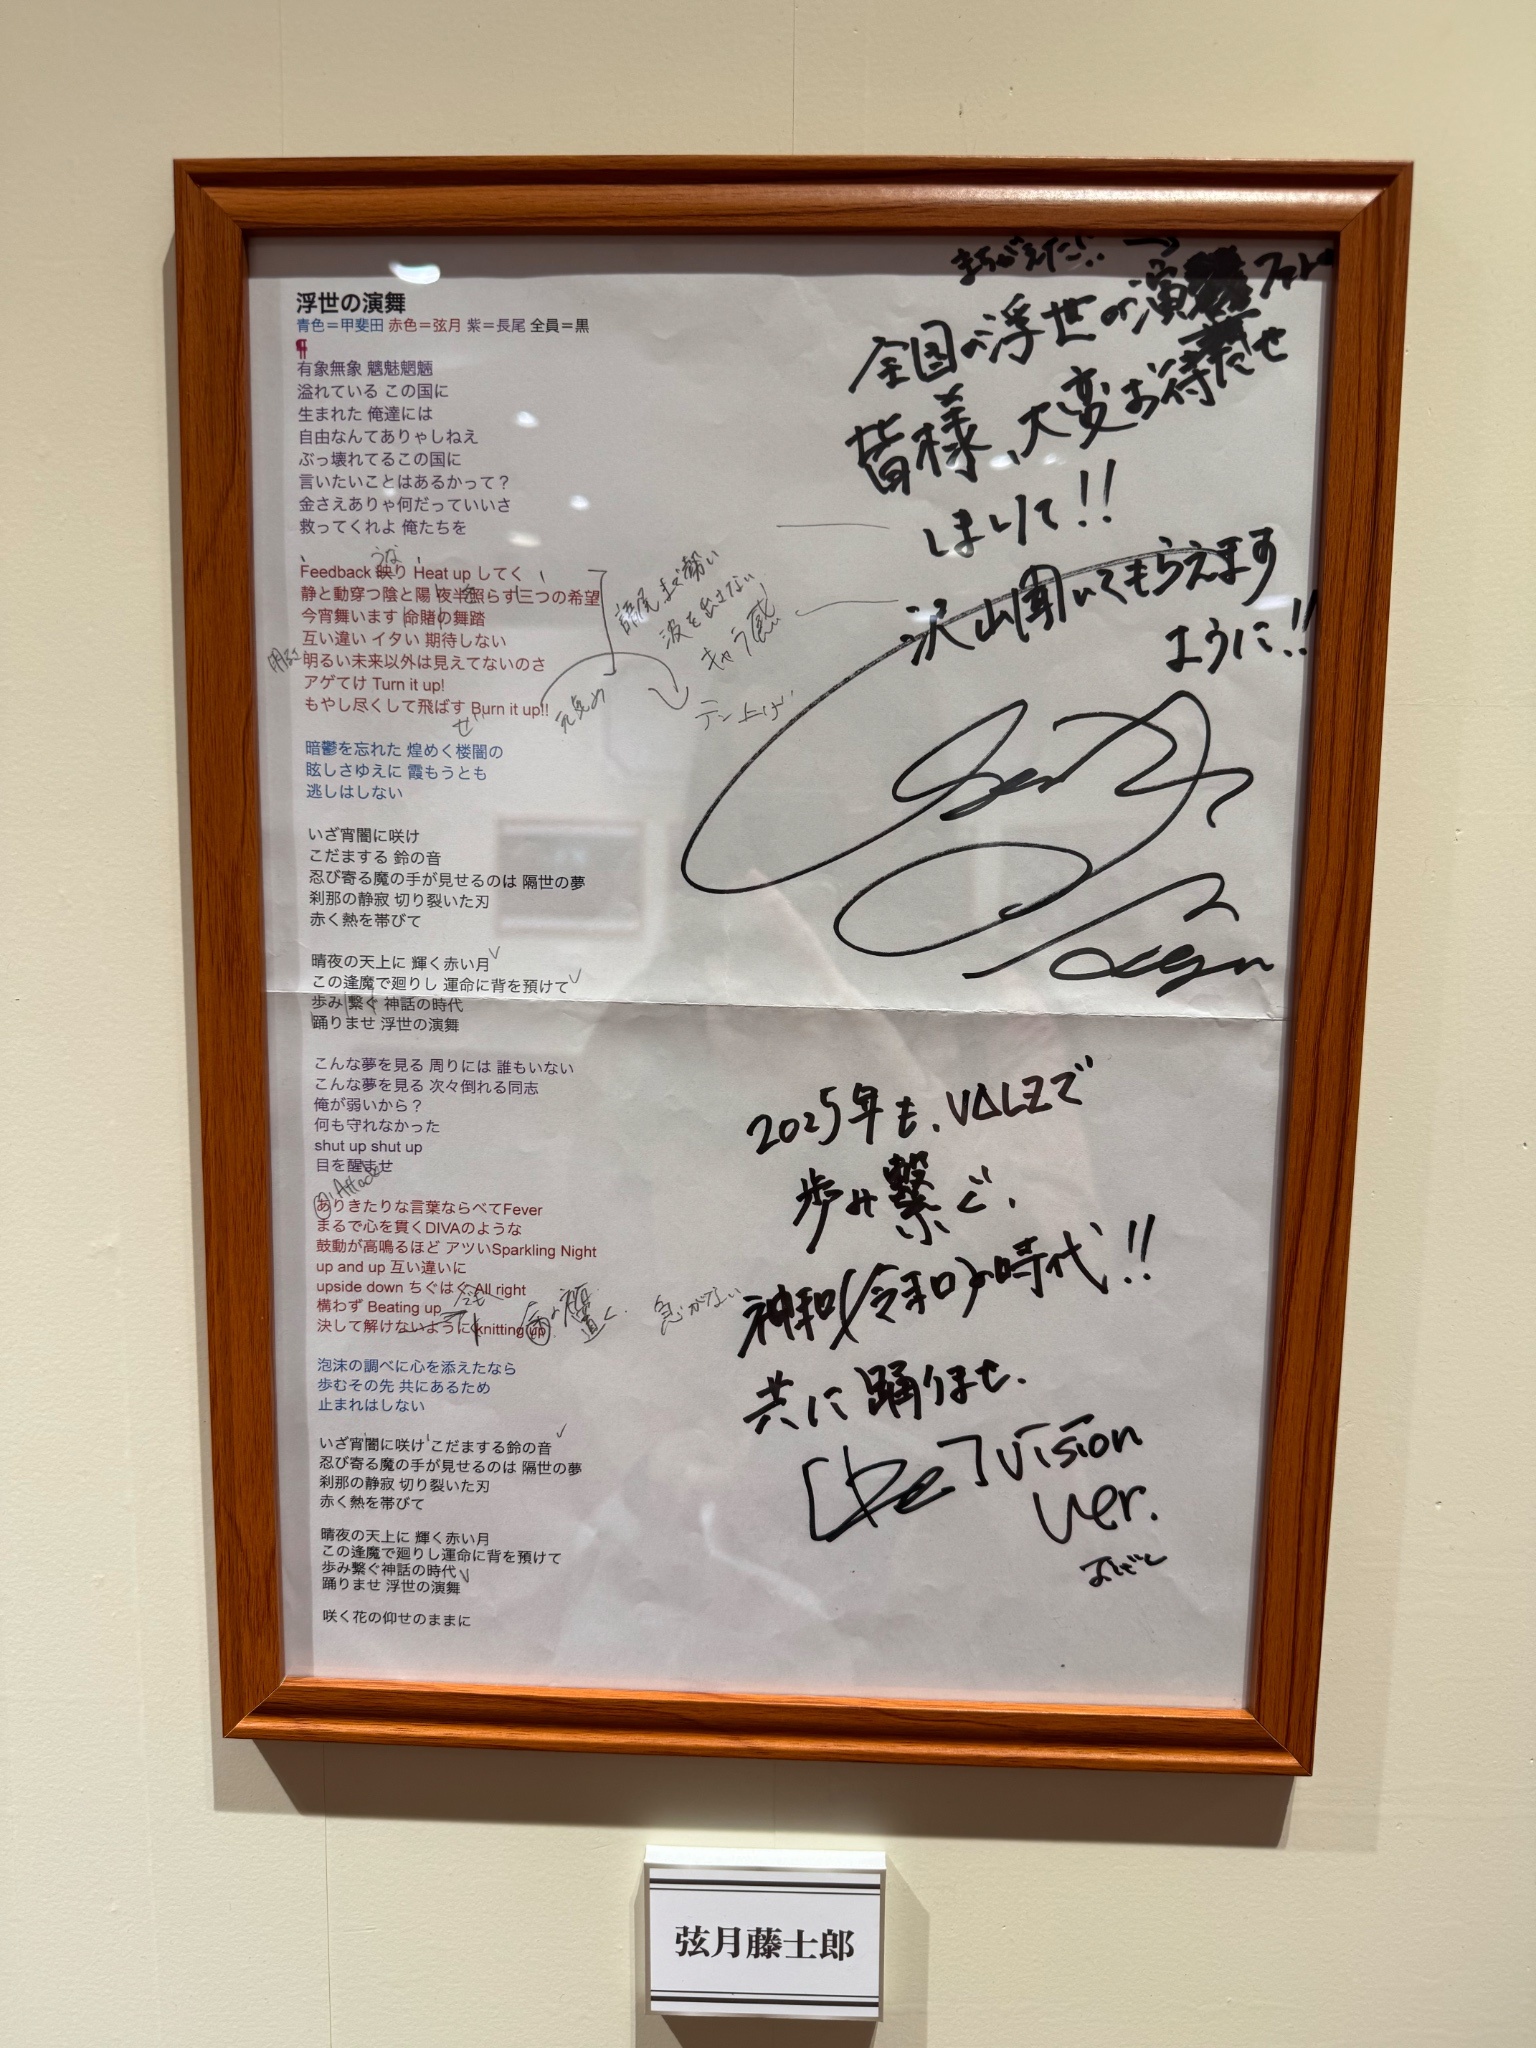 浮世の演舞
青色＝甲斐田 赤色＝弦月 紫＝長尾 全員＝黒
有象無象 魑魅魍魎
溢れている この国に
生まれた 俺達には
自由なんてありゃしねえ
ぶっ壊れてるこの国に
言いたいことはあるかって？
金さえありゃ何だっていいさ
救ってくれよ 俺たちを
うな
Feedback 映り Heat up してく
静と動穿つ陰と陽 夜半照らす三つの希望
今宵舞います 命賭の舞踏
互い違い イタい 期待しない
明るい未来以外は見えてないのさ
アゲてけ Turn it up!
もやし尽くして飛ばす Burn it up!!
ぜ
語尾まで勢い
波を出さない
キャラ感
元気め
テン上げ
暗鬱を忘れた 煌めく楼閣の
眩しさゆえに 霞もうとも
逃しはしない
いざ宵闇に咲け
こだまする 鈴の音
忍び寄る魔の手が見せるのは 隔世の夢
刹那の静寂 切り裂いた刃
赤く熱を帯びて
晴夜の天上に 輝く赤い月
この逢魔で廻りし 運命に背を預けて
歩み 繋ぐ 神話の時代
踊りませ 浮世の演舞
こんな夢を見る 周りには 誰もいない
こんな夢を見る 次々倒れる同志
俺が弱いから？
何も守れなかった
shut up shut up
目を醒ませ
Attack
ありきたりな言葉ならべてFever
まるで心を貫くDIVAのような
鼓動が高鳴るほど アツいSparkling Night
up and up 互い違いに
upside down ちぐはぐ All right
構わず Beating up
決して解けないように knitting up
急がない
泡沫の調べに心を添えたなら
歩むその先 共にあるため
止まれはしない
いざ宵闇に咲け こだまする鈴の音
忍び寄る魔の手が見せるのは 隔世の夢
刹那の静寂 切り裂いた刃
赤く熱を帯びて
晴夜の天上に 輝く赤い月
この逢魔で廻りし運命に背を預けて
歩み繋ぐ神話の時代
踊りませ 浮世の演舞
咲く花の仰せのままに
まちがえた!! →
全国の浮世の演 ファンの
皆様、大変お待たせ
しまして!!
沢山聞いてもらえます
ように!!
2025年も、VΔLZで
歩み繋ぐ、
神和(令和)の時代!!
共に踊りませ。
Vision
ver.
弦月藤士郎